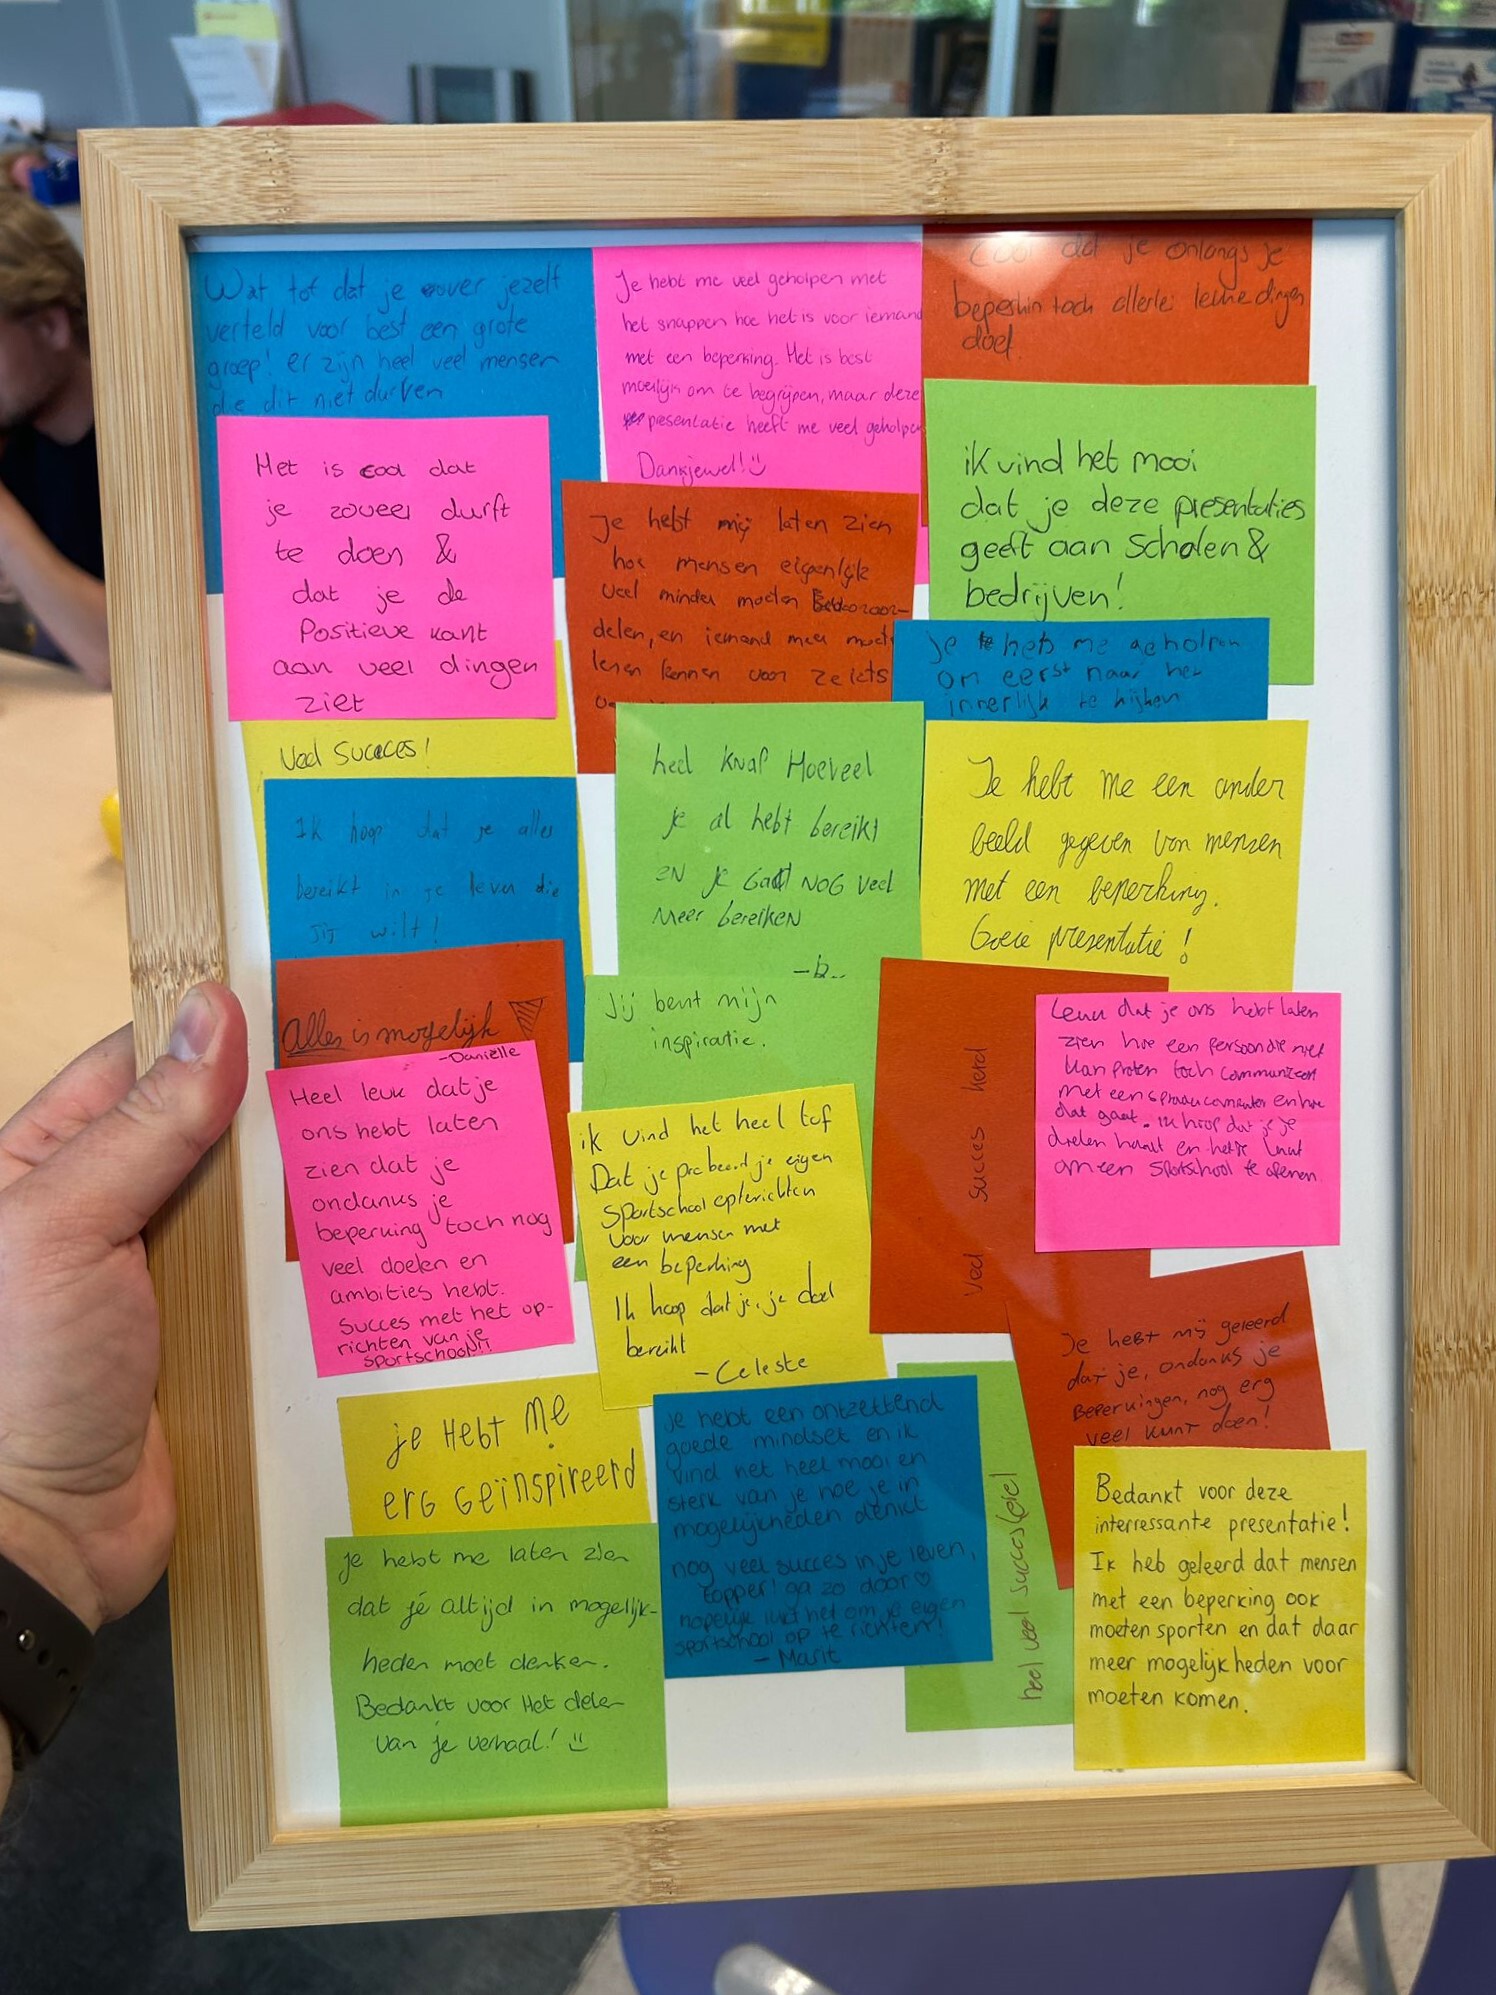 Wat tof dat je over jezelf
verteld voor best een grote
groep! er zijn heel veel mensen
die dit niet durven
Je hebt me veel geholpen met
het snappen hoe het is voor iemand
met een beperking. Het is best
moeilijk om te begrijpen, maar deze
presentatie heeft me veel geholpen
Dankjewel!
Cool dat je onlangs je
beperkin toch allerlei leuke dingen
doet
Het is cool dat
je zoveel durft
te doen &
dat je de
Positieve kant
aan veel dingen
ziet
Je hebt mij laten zien
hoe mensen eigenlijk
veel minder moeten
delen, en iemand meer moeten
leren kennen voor ze iets
ik vind het mooi
dat je deze presentaties
geeft aan scholen &
bedrijven!
Je heb me geholpen
om eerst naar het
innerlijk te kijken
Veel Succes!
Ik hoop dat je alles
bereikt in je leven die
Jij wilt!
heel knap Hoeveel
je al hebt bereikt
EN je GAAT NOG veel
Meer bereiken
Je hebt me een ander
beeld gegeven van mensen
met een beperking.
Goeie presentatie!
Alles is mogelijk
-Daniëlle
Jij bent mijn
inspiratie.
veel succes
Leuk dat je ons hebt laten
zien hoe een persoon die niet
kan praten toch communiceert
met een en hoe
dat gaat. ik hoop dat je je
doelen haalt en het je lukt
om een sportschool te openen
Heel leuk dat je
ons hebt laten
zien dat je
ondanks je
beperking toch nog
veel doelen en
ambities hebt.
Succes met het op-
richten van je
sportschool!!
ik vind het heel tof
Dat je probeert je eigen
Sportschool opterichten
voor mensen met
een beperking
Ik hoop dat je, je doel
bereikt
- Celeste
Je hebt mij geleerd
dat je, ondanks je
beperkingen, nog erg
veel kunt doen!
je HEBT ME
ERG GEÏNSPIREERD
je hebt een ontzettend
goede mindset en ik
vind het heel mooi en
sterk van je hoe je in
mogelijkheden denkt
nog veel succes in je leven,
topper! ga zo door ♡
hopelijk lukt het om je eigen
sportschool op te richten!
- Marit
heel veel succes
Bedankt voor deze
interressante presentatie!
Ik heb geleerd dat mensen
met een beperking ook
moeten sporten en dat daar
meer mogelijkheden voor
moeten komen.
je hebt me laten zien
dat jé altijd in mogelijk-
heden moet denken.
Bedankt voor Het delen
van je verhaal!